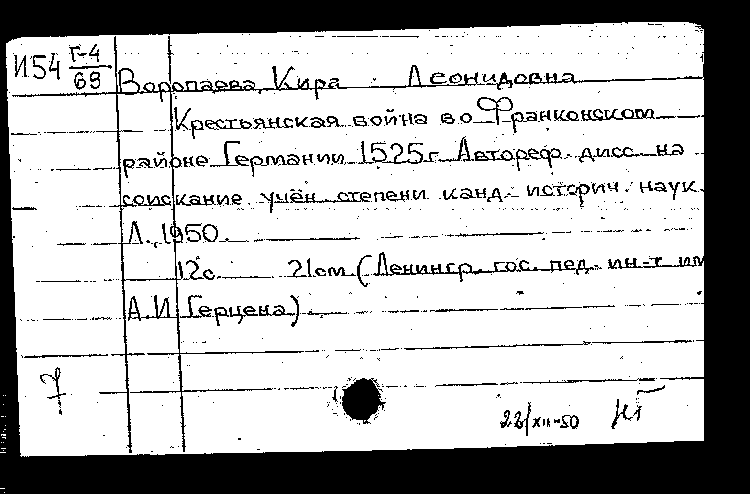 И54 Г-4/69
Воропаева, Кира Леонидовна
Крестьянская война во Франконском
районе Германии 1525г. Автореф. дисс. на
соискание учён. степени канд. историч. наук.
Л., 1950.
12с. 21см (Ленингр. гос. пед. ин-т им
А.И Герцена).
7
22/XII-50